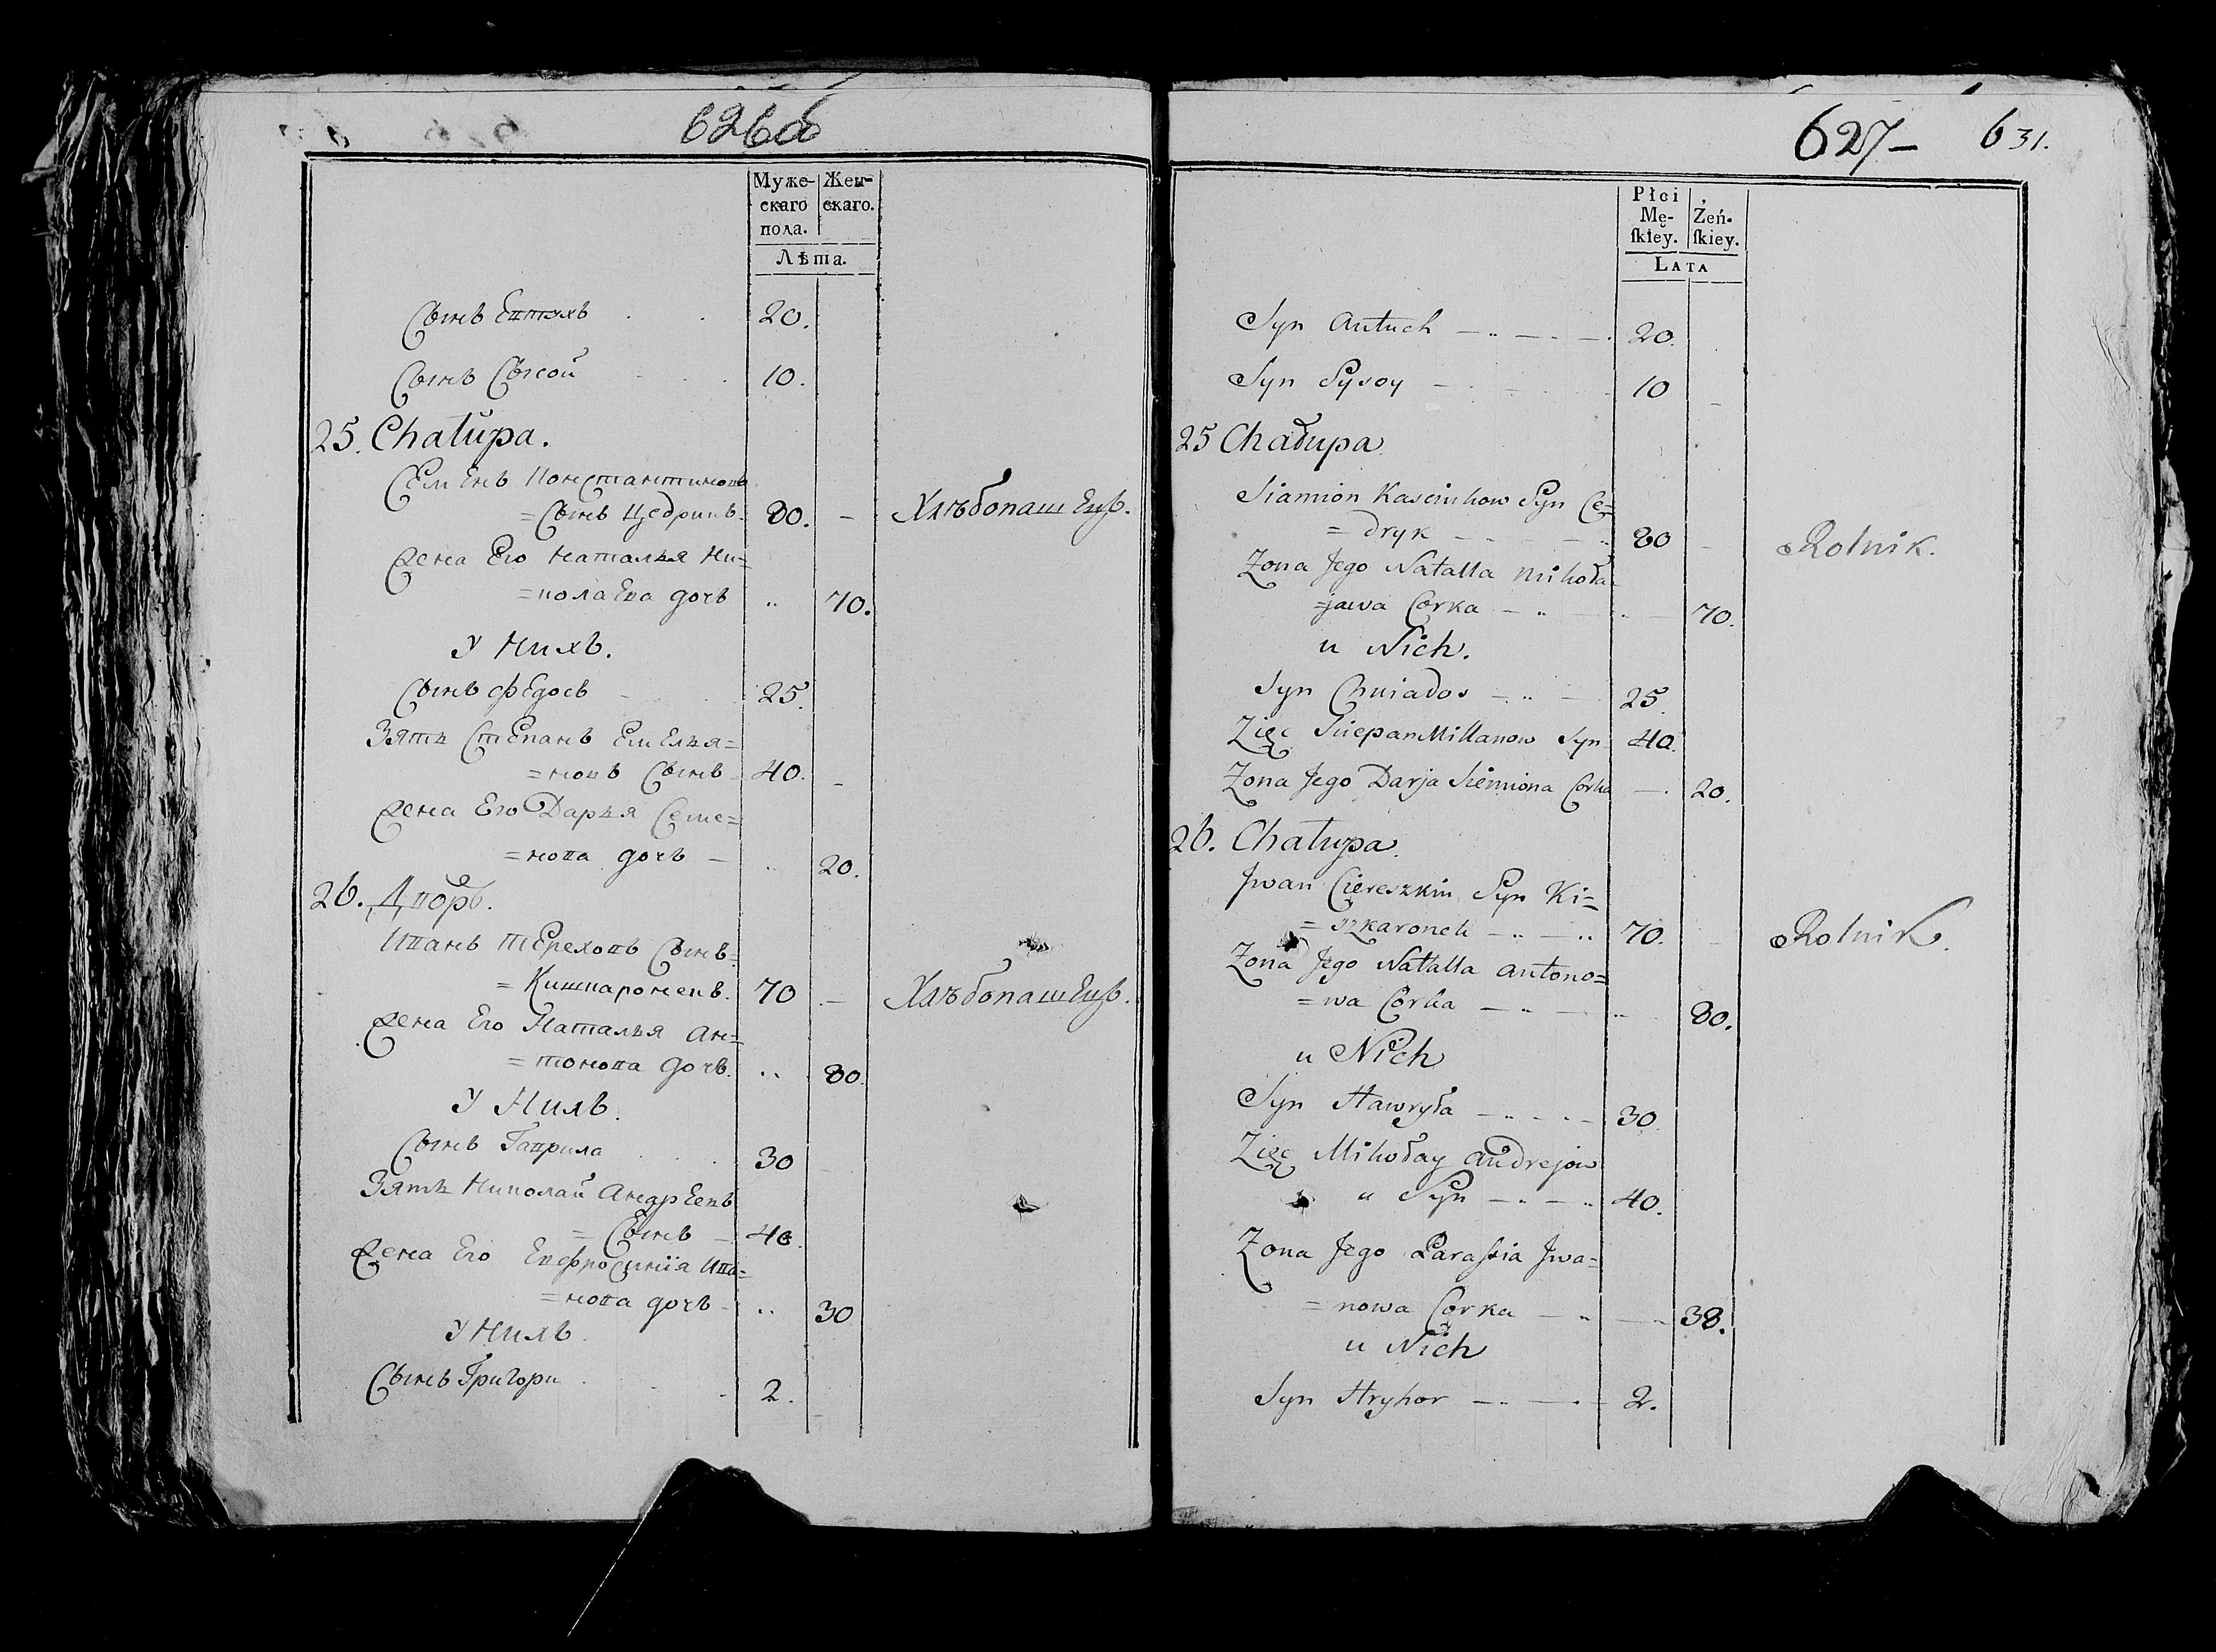 626об
Муже-
скаго
пола.
Жен-
скаго.
Лѣта.
Сынъ Евтухъ 20.
Сынъ Сысой 10.
25. Chałupa.
Семенъ Константиновъ
=Сынъ Цедрикъ. 80. – Хлѣбопашецъ.
Жена Его Наталья Ни=
=колаева дочь .. 70.
У Нихъ.
Сынъ Федосъ 25.
Зять Степанъ Емелья=
=новъ Сынъ 40. –
Жена Его Дарья Семе=
=нова дочь – .. 20.
26. Дворъ.
Иванъ Тереховъ Сынъ=
=Кишкароненъ. 70 – Хлѣбопашецъ.
Жена Его Наталья Ан=
=тонова дочь. .. 80.
У Нихъ.
Сынъ Гаврила 30
Зять Николай Андреевъ
= Сынъ – 40.
Жена Его Евфросинія Ива=
=нова дочь – .. 30
У Нихъ.
Сынъ Григори 2.
627– 631.
Płci
Mę-
ſkiey.
Żeń-
ſkiey.
LATA
Syn Antuch 20.
Syn Sysoy 10
25 Chałupa
Siamion Kasciukow Syn Ce=
= dryk 80 – Rolnik.
Zona Jego Natalla Mikoła
=jawa Corka 70.
u Nich.
Syn Chwiados 25.
Zięc Sciepan Millanow Syn 40.
Zona Jego Darja Siemiona Corka 20.
26. Chałupa.
Jwan Ciereszkin Syn Ki=
= szkaronek 70. – Rolnik.
Zona Jego Natalla Antono=
=wa Corka 80.
u Nich
Syn Hawryła 30.
Zięc Mikołay Andrejow
u Syn 40.
Zona Jego Paraſsia Jwa=
= nowa Corka 38.
u Nich
Syn Hryhor 2.